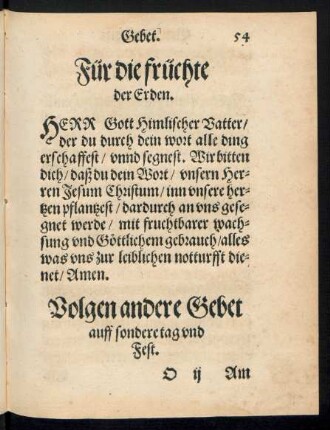 Gebet. 54
Für die früchte
der Erden.
HERR Gott Himlischer Vatter/
der du durch dein wort alle ding
erschaffest / vnnd segnest. Wir bitten
dich / daß du dem Wort / vnsern Her-
ren Jesum Christum / inn vnsere her-
tzen pflantzest / dardurch an vns gese-
gnet werde / mit fruchtbarer wach-
sung vnd Göttlichem gebrauch / alles
was vns zur leiblichen notturfft die-
net / Amen.
Volgen andere Gebet
auff sondere tag vnd
Fest.
O ij Am